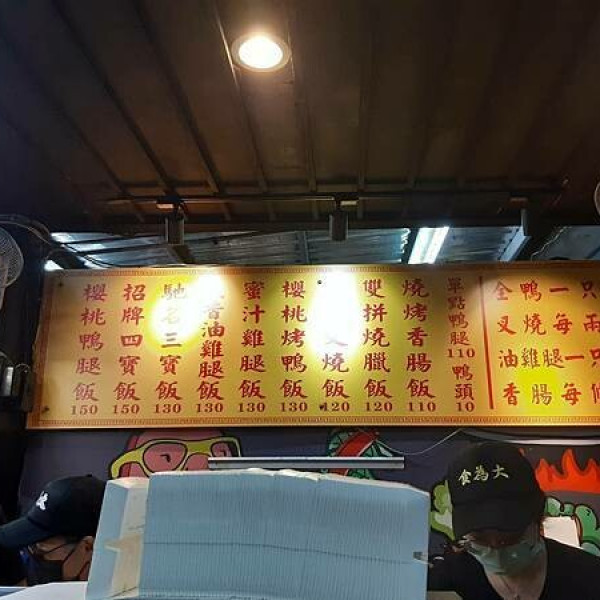 櫻桃鴨腿飯 150
招牌四寶飯 150
馳名三寶飯 130
油雞腿飯 130
蜜汁雞腿飯 130
櫻桃烤鴨飯 130
叉燒飯 120
雙拼燒臘飯 120
燒烤香腸飯 110
單點鴨腿110 鴨頭10
全鴨一只
叉燒每兩
油雞腿一只
香腸每
食為大